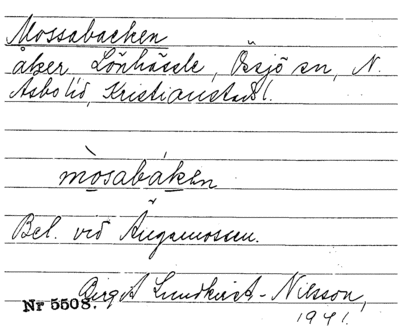 Mossabacken
åker Lönhässle, Össjö sn, N.
Åsbo hd, Kristianstads l.
mòsabáken
Bel. vid Ängamossen.
Birgit Lundkvist-Nilsson,
Nr 5508.
1941.